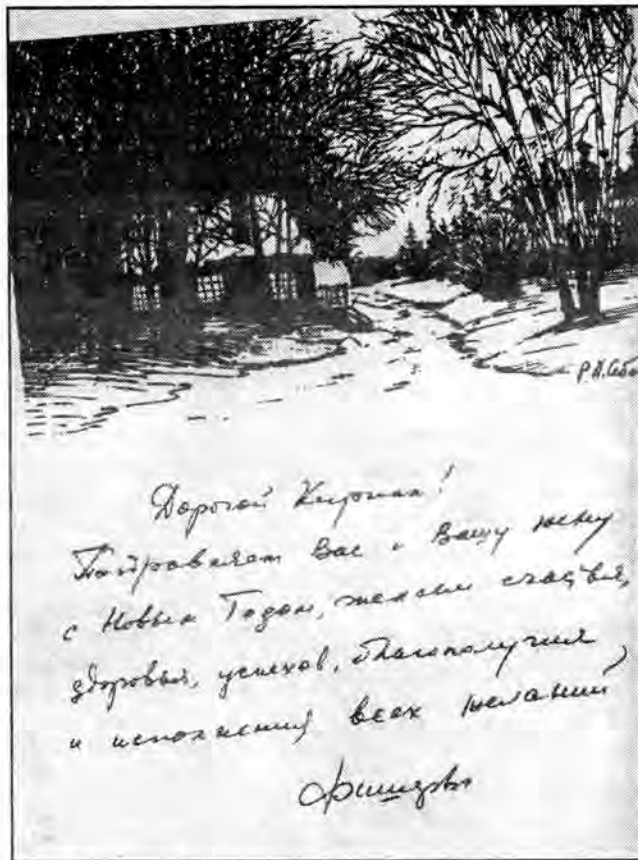 Р.В. Себ
Дорогой Кирилл!
Поздравляем Вас и Вашу жену
с Новым Годом, желаем счастья,
здоровья, успехов, благополучия
и исполнения всех желаний